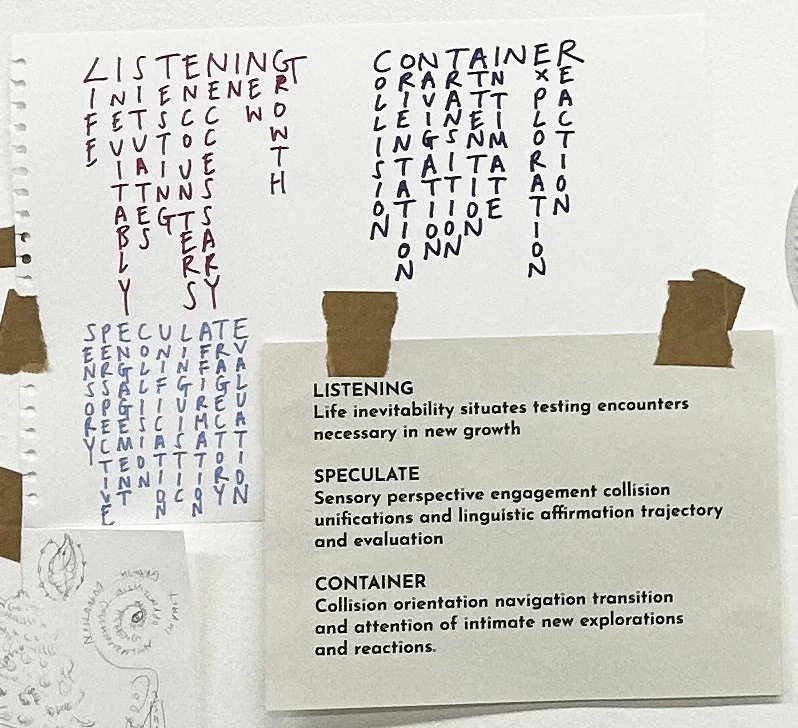 LISTENING
LIFE
INEVITABLY
SITUATES
TESTING
ENCOUNTERS
NECCESSARY
IN
NEW
GROWTH
CONTAINER
COLLISION
ORIENTATION
NAVIGATION
TRANSITION
ATTENTION
INTIMATE
N
EXPLORATION
REACTION
SPECULATE
SENSORY
PERSPECTIVE
ENGAGEMENT
COLLISION
UNIFICATION
LINGUISTIC
AFFIRMATION
TRAGECTORY
EVALUATION
LISTENING
Life inevitability situates testing encounters
necessary in new growth
SPECULATE
Sensory perspective engagement collision
unifications and linguistic affirmation trajectory
and evaluation
CONTAINER
Collision orientation navigation transition
and attention of intimate new explorations
and reactions.